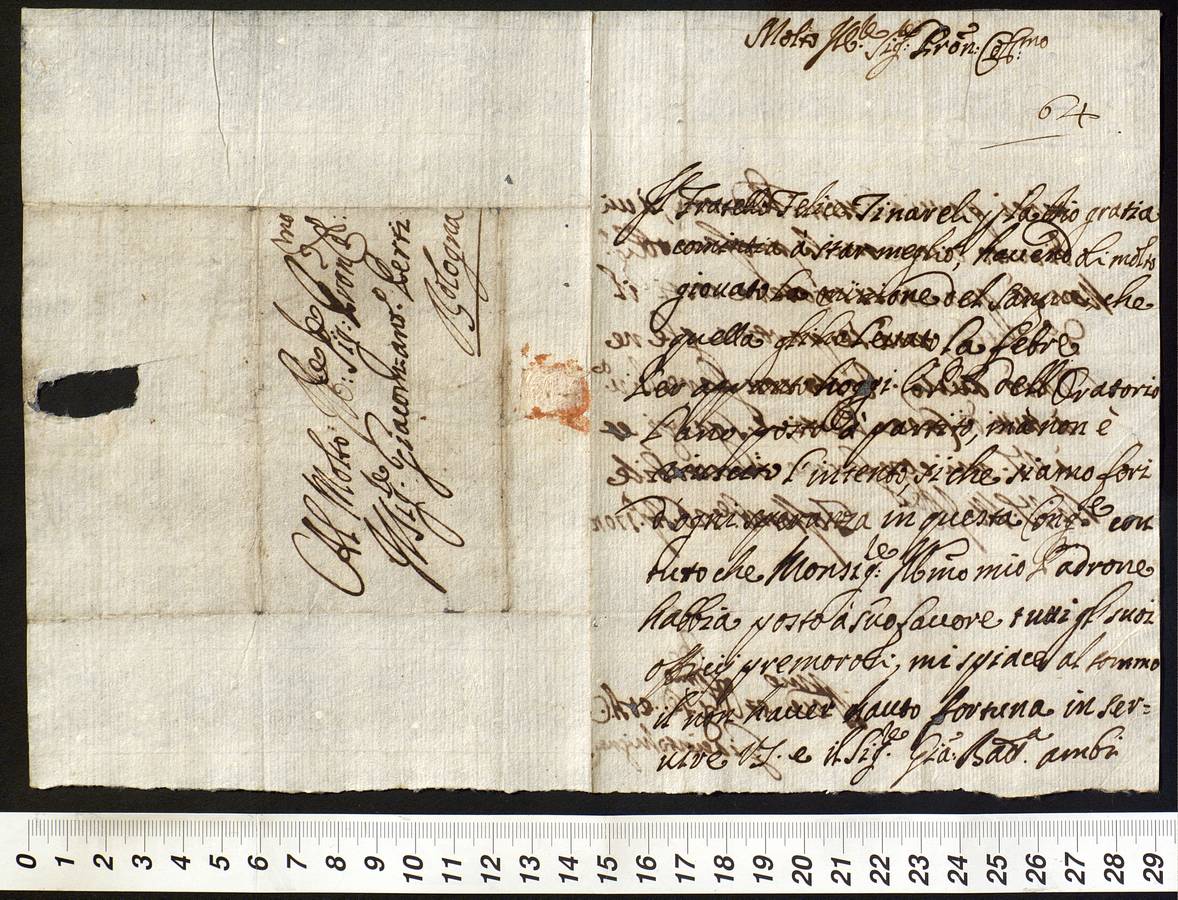 Molto Ill.re Sig.re Pron: Coll.mo
64
Il Fratello Felice Tinareli p la Dio gratia
comintia à star meglio, havendoli molto
giovato la emissione del sangue, che
quella gli hà levato la febre
Per apponto hoggi dell Oratorio
l'ano posto à partito, mà non è
riuscito l'intento, si che siamo fori
d'ogni speranza in questa Cong.e con
tuto che Monsig.re Ill.mo mio Padrone
habbia posto à suo favore tutti gli suoi
offizij premorosi, mi spiace al sommo
il non haver hauto fortuna in ser=
vire V.S. e il Sig.re Gia: Batt.a ambi
Al Molto Ill.re Sig.r Pron
Il Sig.re Giacom:ant.o Perti
Bologna
0 1 2 3 4 5 6 7 8 9 10 11 12 13 14 15 16 17 18 19 20 21 22 23 24 25 26 27 28 29